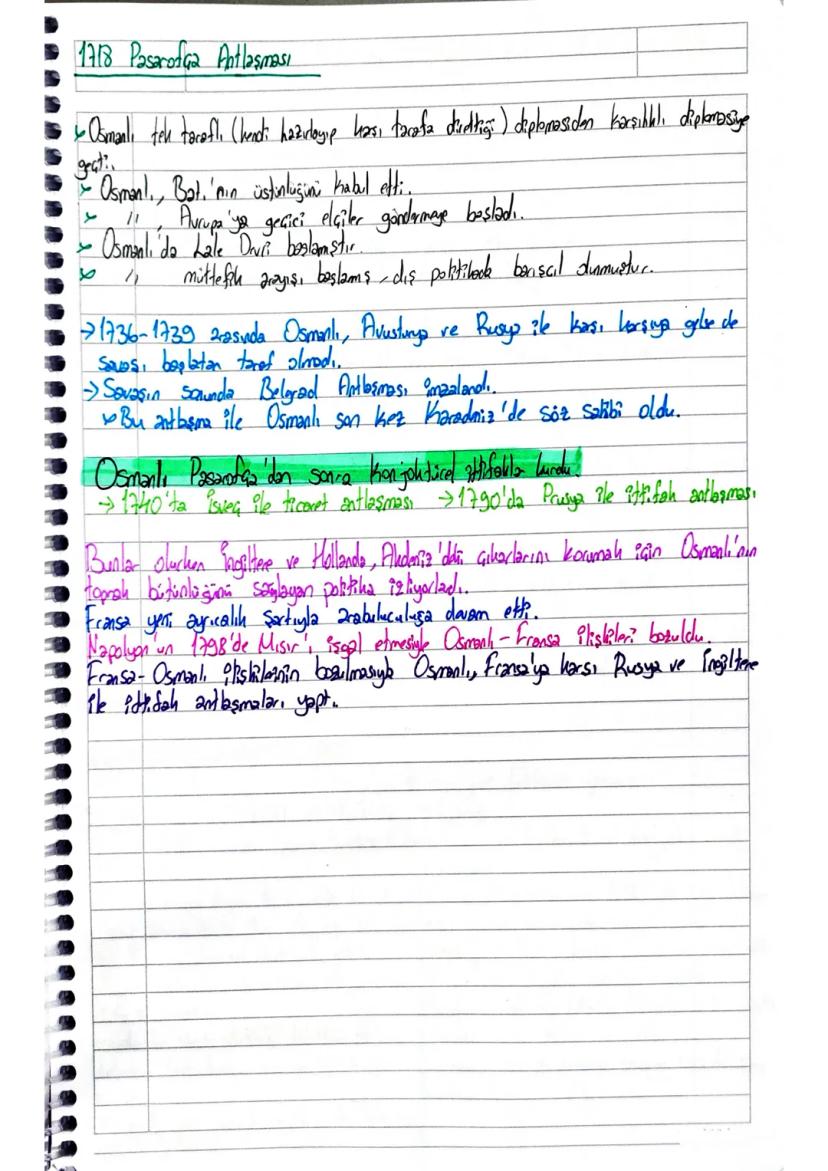 1718 Pasarofça Antlaşması
Osmanlı tek taraflı (kendi hazırlayıp karşı tarafa direttiği) diplomasiden karşılıklı diplomasiye
geçti.
Osmanlı, Batı'nın üstünlüğünü kabul etti.
" , Avrupa'ya geçici elçiler göndermeye başladı.
Osmanlı'da Lale Devri başlamıştır.
" müttefik arayışı başlamış, dış politikada barışçıl durmuştur.
→1736-1739 arasında Osmanlı, Avusturya ve Rusya ile karşı karşıya gelse de
savaşı başlatan taraf olmadı.
→Savaşın sonunda Belgrad Antlaşması imzalandı.
Bu antlaşma ile Osmanlı son kez Karadeniz'de söz sahibi oldu.
Osmanlı Pasarofça'dan sonra konjoktürel ittifaklar kurdu.
→1740'ta İsveç ile ticaret antlaşması →1790'da Prusya ile ittifak antlaşması
Bunlar olurken İngiltere ve Hollanda, Akdeniz'deki çıkarlarını korumak için Osmanlı'nın
toprak bütünlüğünü sağlayan politika izliyorlardı.
Fransa yeni ayrıcalık şartıyla arabuluculuğa devam etti.
Napolyon'un 1798'de Mısır'ı işgal etmesiyle Osmanlı-Fransa ilişkileri bozuldu.
Fransa-Osmanlı ilişkilerinin bozulmasıyla Osmanlı, Fransa'ya karşı Rusya ve İngiltere
ile ittifak antlaşmaları yaptı.